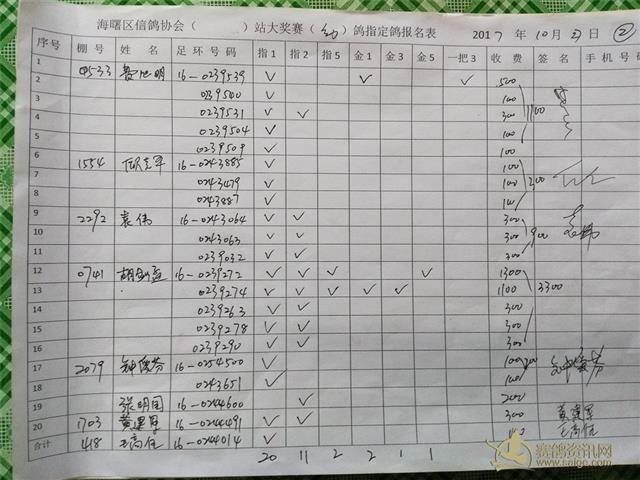 海曙区信鸽协会（ ）站大奖赛（幼）鸽指定鸽报名表 2017 年 10 月 27 日 ②
序号 棚号 姓名 足环号码 指1 指2 指5 金1 金3 金5 一把3 收费 签名 手机号码
1 0533 16-0239539 ✓ ✓ ✓ 500
2 0239540 ✓ 100
3 0239531 ✓ ✓ 300 1100
4 0239504 ✓ 100
5 0239509 ✓ 100
6 1554 16-0243885 ✓ 100
7 0243479 ✓ 100 300
8 0243887 ✓ 100
9 2292 袁伟 16-0243064 ✓ ✓ 300 袁伟
10 0243063 ✓ ✓ 300 900
11 0239032 ✓ ✓ 300
12 0741 16-0239272 ✓ ✓ ✓ ✓ 1300
13 0239274 ✓ ✓ ✓ ✓ ✓ 1100 3300
14 0239263 ✓ ✓ 300
15 0239278 ✓ ✓ 300
16 0239290 ✓ ✓ 300
17 2079 16-0254500 ✓ 100 200
18 0243651 ✓ 100
19 张明国 16-0244600 ✓ 200
20 1703 黄建军 16-0244491 ✓ ✓ 300 黄建军
合计 418 王高任 16-0244014 ✓ 王高任
20 11 2 2 1 1
赛鸽资讯网
www.saige.com